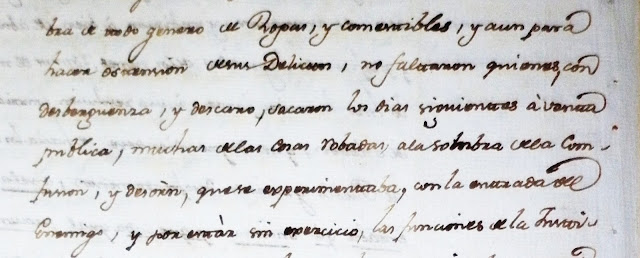 bra de todo genero de Ropas, y comestibles, y aun para
hacer ostension de sus Delictos, no faltaron quienes, con
desberguenza, y descaro, sacaron los dias siguientes à venta
publica, muchas de las cosas robadas, a la sombra de la Con-
fusion, y desorñ, que se experimentaba, con la entrada del
Enemigo, y por estàr sin exercicio, las funciones de la Justi-